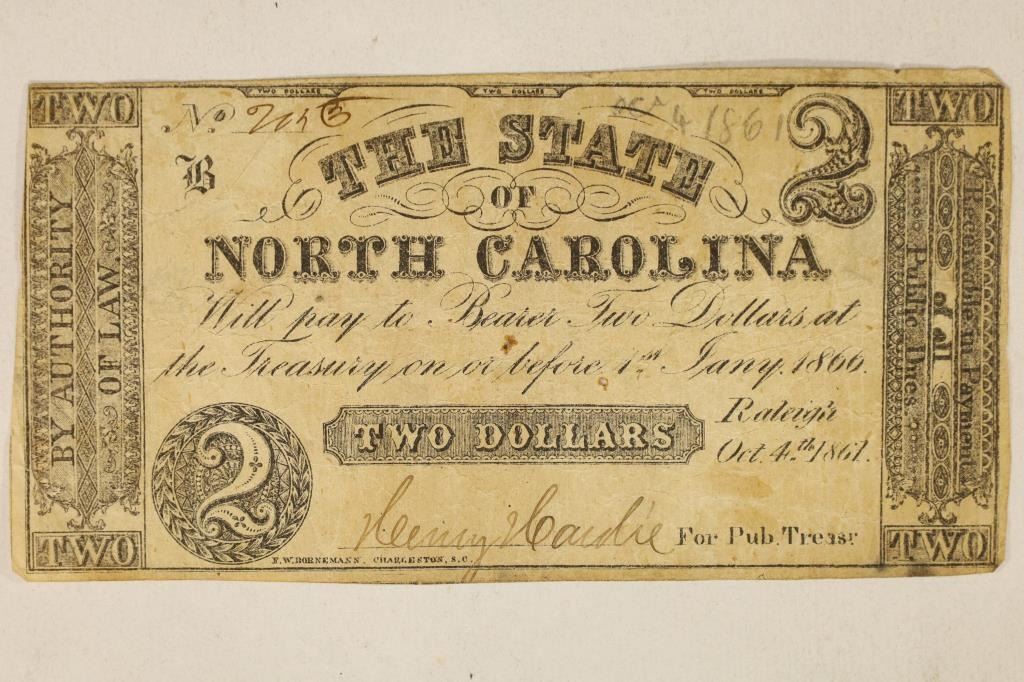 TWO DOLLARS TWO DOLLARS TWO DOLLARS
TWO
No
4 1861
2
B
THE STATE
OF
NORTH CAROLINA
Will pay to Bearer Two Dollars, at
the Treasury on or before 1st Jany. 1866.
Raleigh
Oct. 4th 1861.
TWO DOLLARS
2
Henry Hardie For Pub. Treasr
F. W. BORNEMANN. CHARLESTON, S.C.
BY AUTHORITY
OF LAW.
TWO
TWO
Receivable in Payment
of all
Public Dues.
TWO